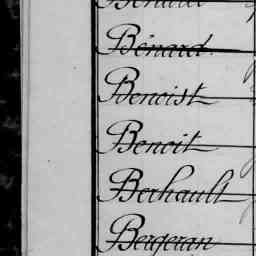 Bénard
Benoist
Benoit
Berhault
Bergeran